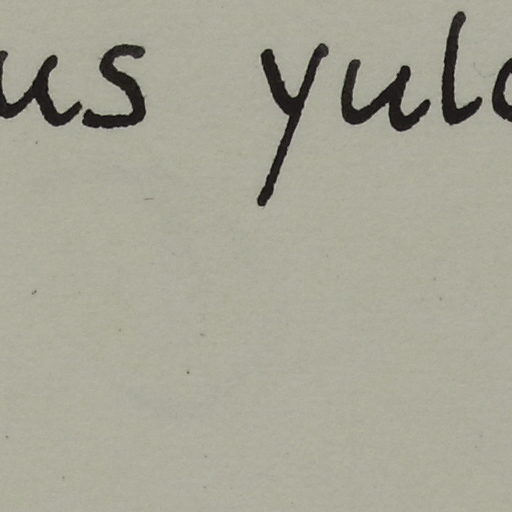 us yul